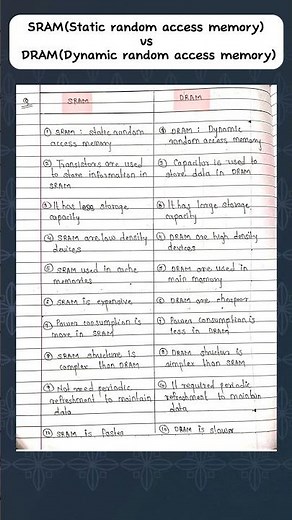 SRAM(Static random access memory)
vs
DRAM(Dynamic random access memory)
Q
SRAM
DRAM
① SRAM : static random
access memory
① DRAM : Dynamic
random access memory
② Transistors are used
to store information in
SRAM
② Capacitor is used to
store data in DRAM
③ It has less storage
capacity
③ It has large storage
capacity
④ SRAM are low density
devices
④ DRAM are high density
devices
⑤ SRAM used in cache
memories
⑤ DRAM are used in
main memory
⑥ SRAM is expensive
⑥ DRAM are cheaper
⑦ Power consumption is
more in SRAM
⑦ Power consumption is
less in DRAM
⑧ SRAM structure is
complex than DRAM
⑧ DRAM structure is
simplex than SRAM
⑨ Not need periodic
refreshment to maintain
data
⑨ It required periodic
refreshment to maintain
data
⑩ SRAM is faster
⑩ DRAM is slower